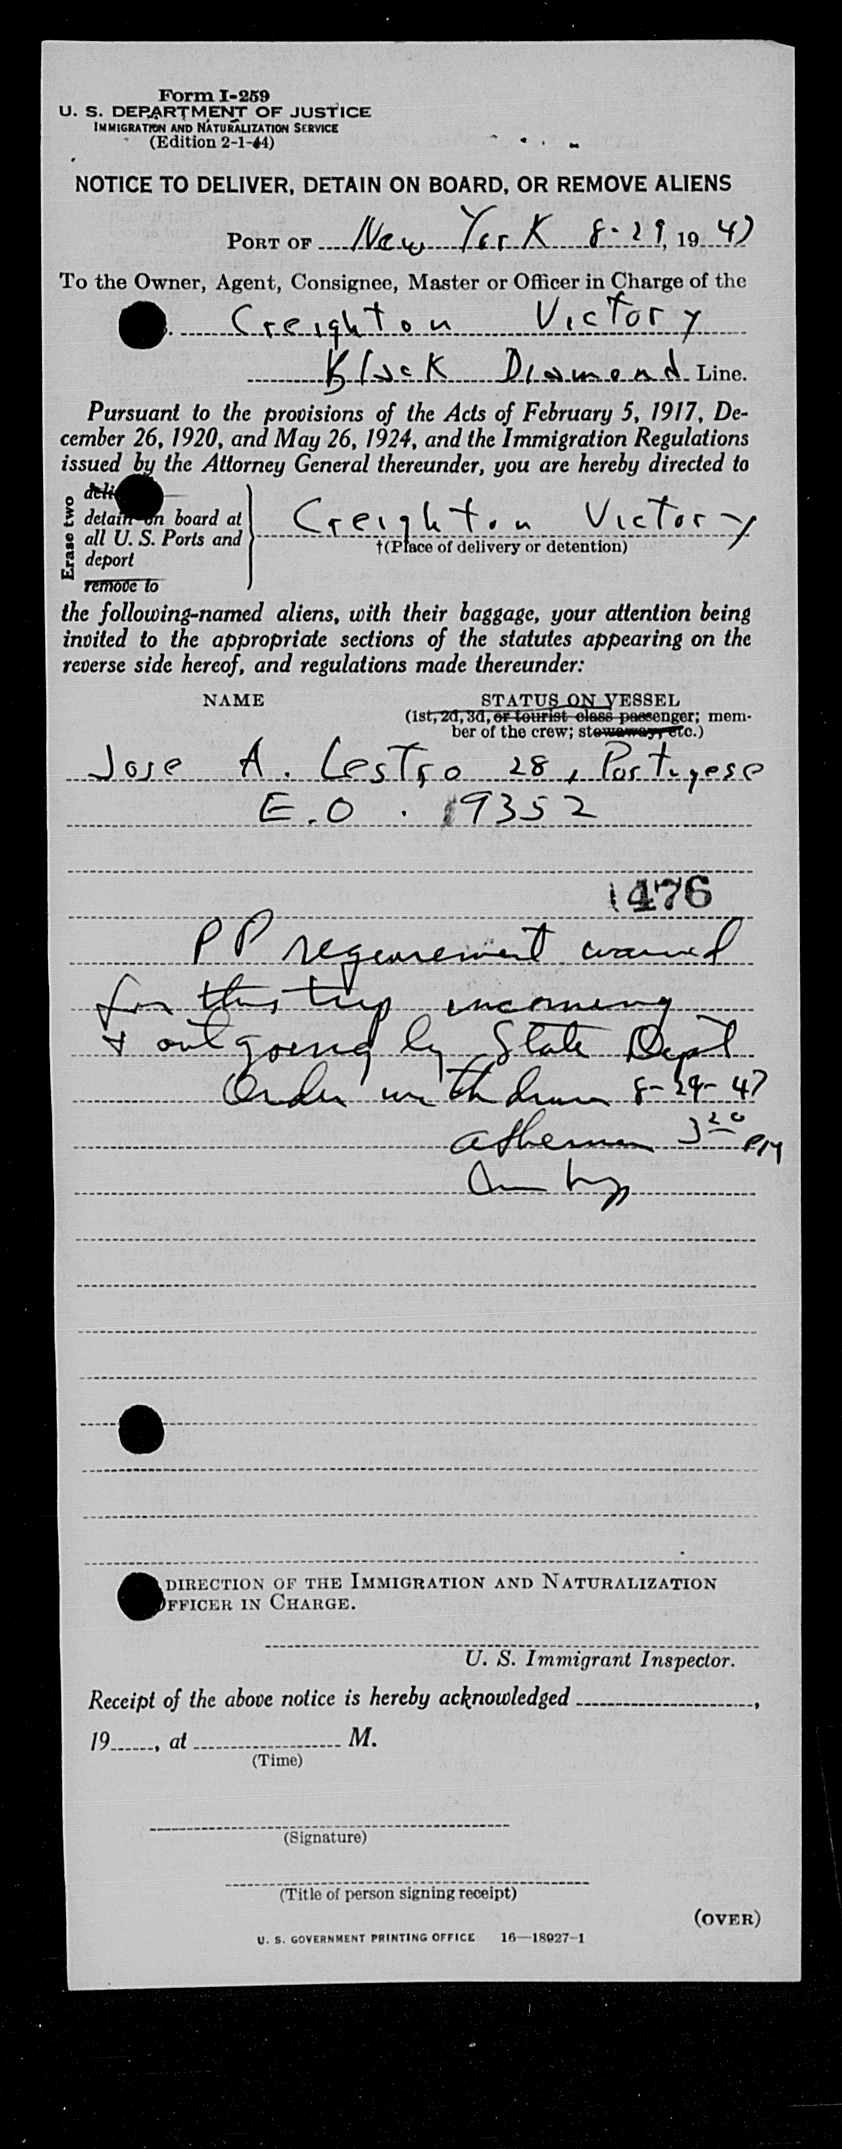 Form I-259
U. S. DEPARTMENT OF JUSTICE
IMMIGRATION AND NATURALIZATION SERVICE
(Edition 2-1-44)
NOTICE TO DELIVER, DETAIN ON BOARD, OR REMOVE ALIENS
PORT OF New York 8-29, 1947
To the Owner, Agent, Consignee, Master or Officer in Charge of the
Creighton Victory
Black Diamond Line.
Pursuant to the provisions of the Acts of February 5, 1917, De-
cember 26, 1920, and May 26, 1924, and the Immigration Regulations
issued by the Attorney General thereunder, you are hereby directed to
Erase two
detain on board at
all U. S. Ports and
deport
remove to
Creighton Victory
†(Place of delivery or detention)
the following-named aliens, with their baggage, your attention being
invited to the appropriate sections of the statutes appearing on the
reverse side hereof, and regulations made thereunder:
NAME STATUS ON VESSEL
(1st, 2d, 3d, or tourist class passenger; mem-
ber of the crew; stowaway, etc.)
Jose A. Lestro 28, Portugese
E.O. 9352
1476
PP requirement waived
for this trip incoming
& outgoing by State Dept
Order withdrawn 8-29-47
3 20 PM
DIRECTION OF THE IMMIGRATION AND NATURALIZATION
OFFICER IN CHARGE.
U. S. Immigrant Inspector.
Receipt of the above notice is hereby acknowledged ,
19 , at M.
(Time)
(Signature)
(Title of person signing receipt)
(OVER)
U. S. GOVERNMENT PRINTING OFFICE 16—18927-1